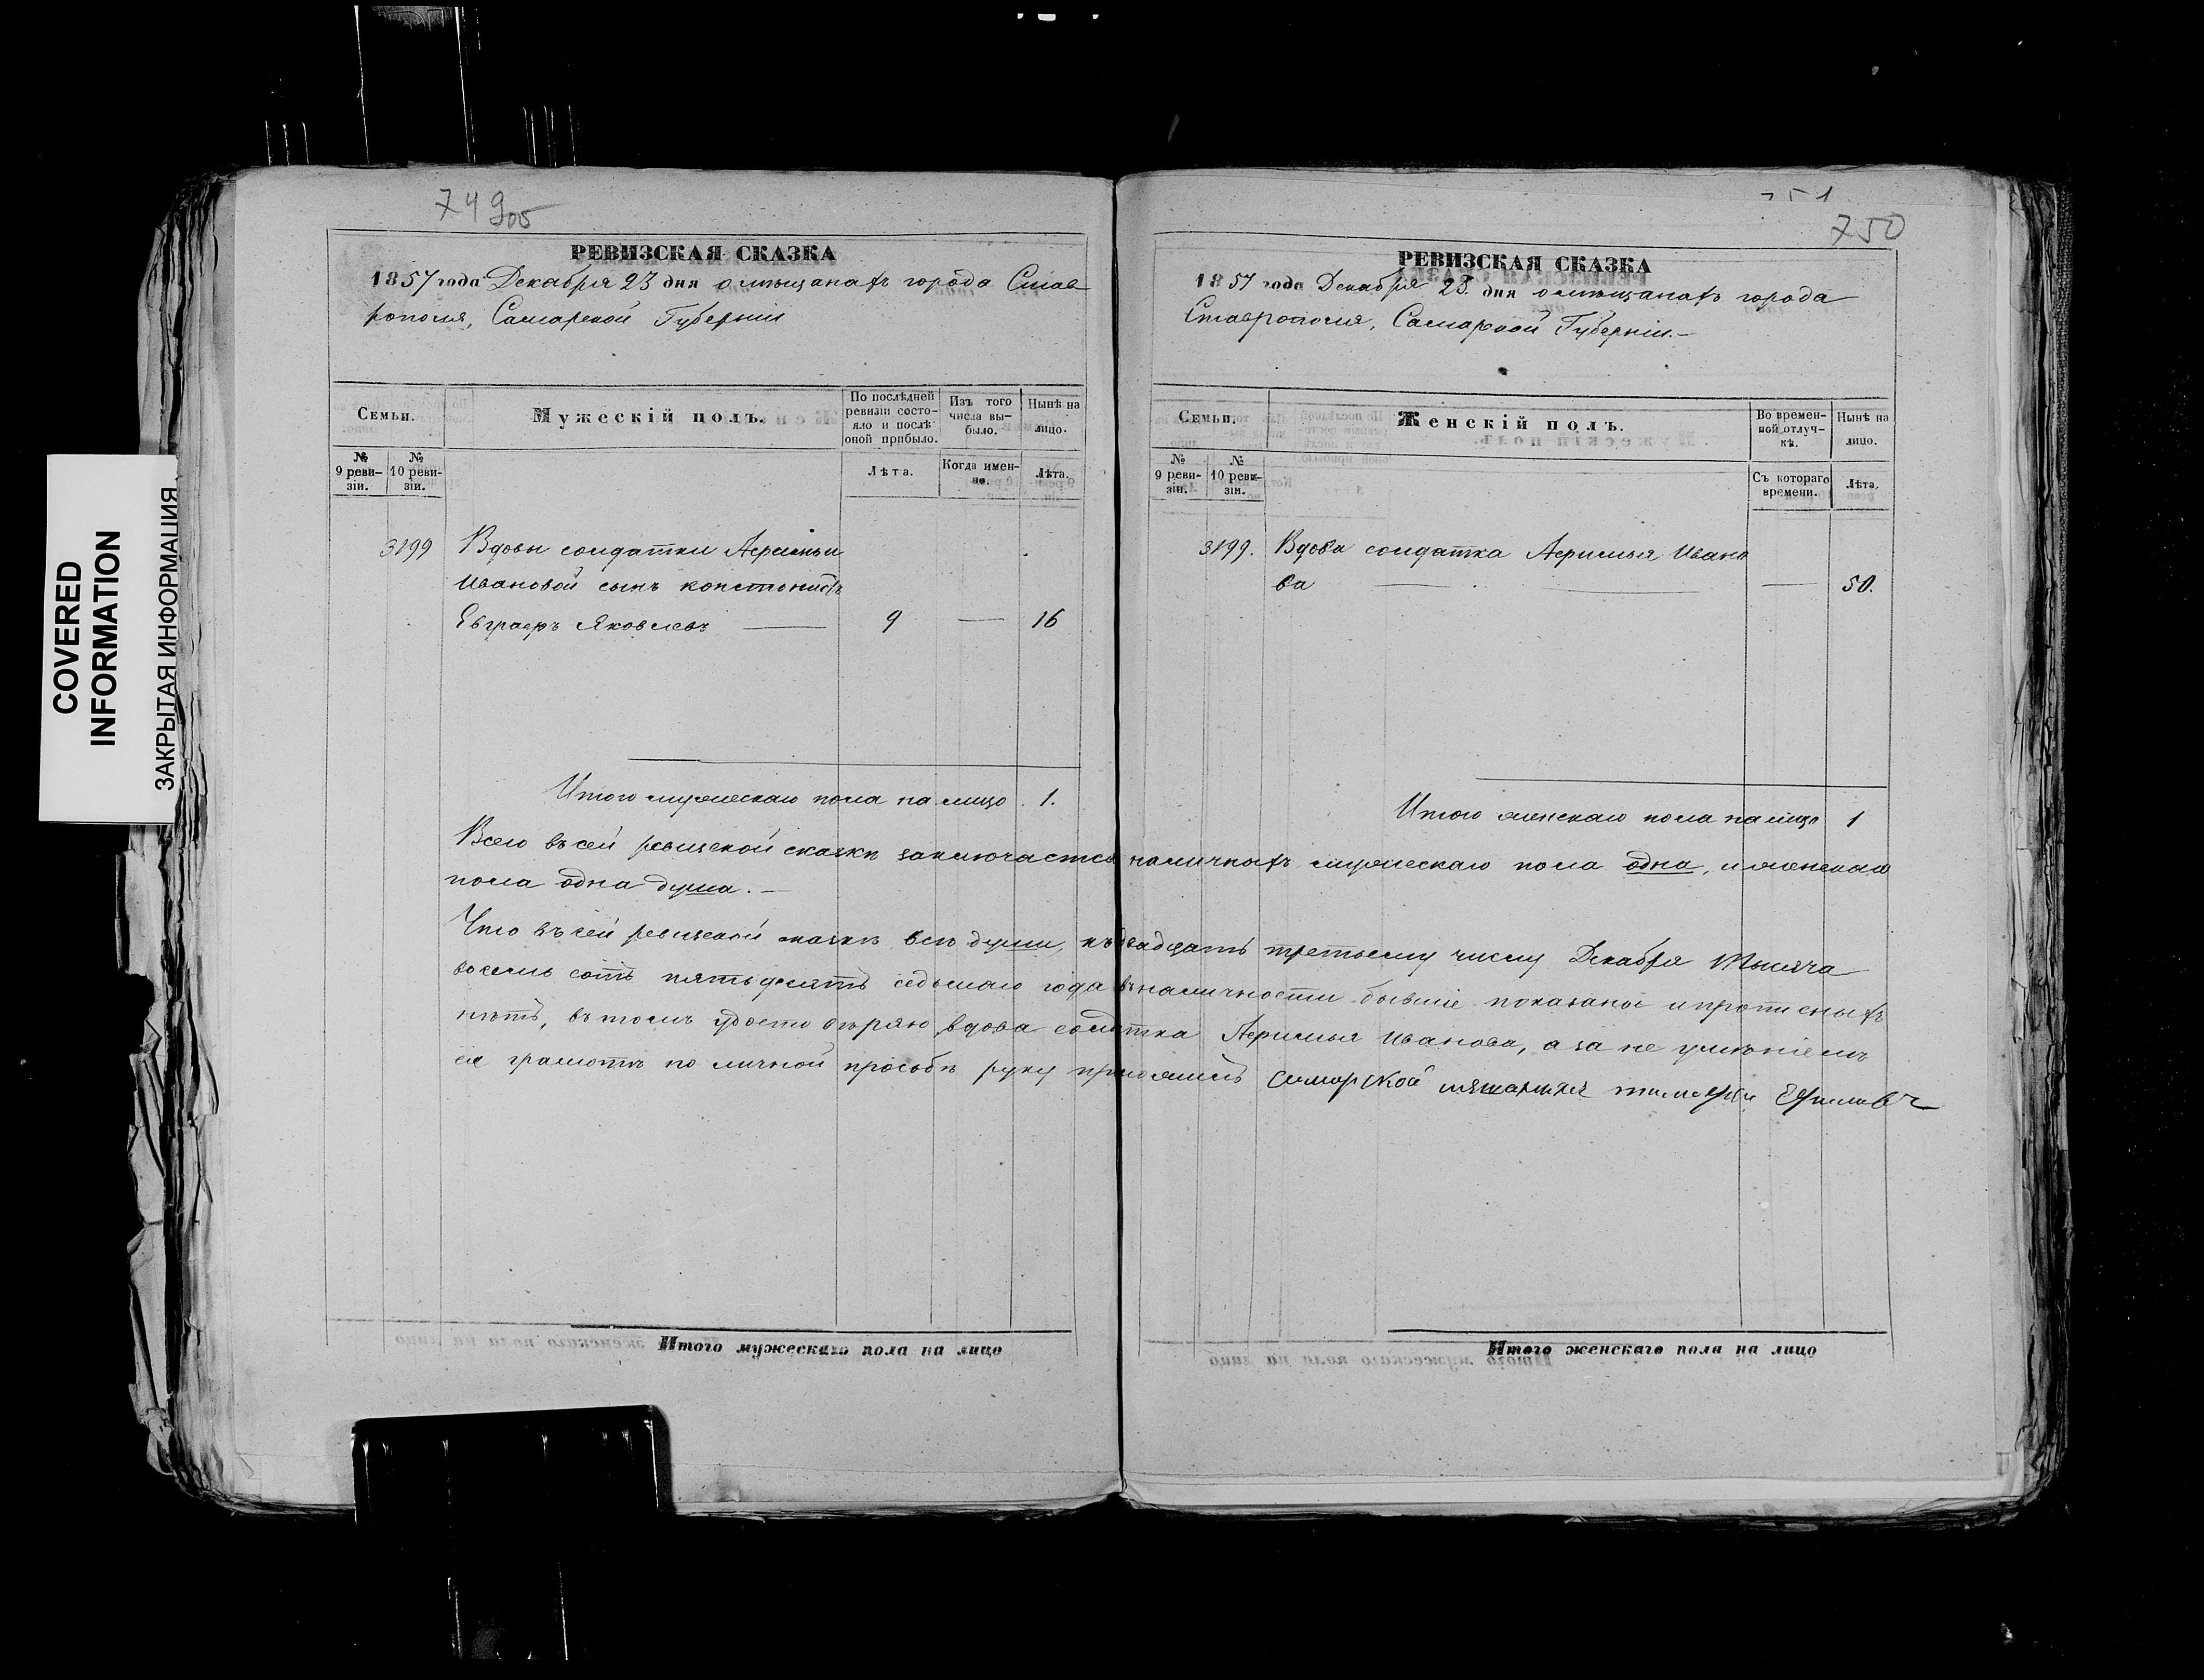 COVERED
INFORMATION
ЗАКРЫТАЯ ИНФОРМАЦИЯ
749об
РЕВИЗСКАЯ СКАЗКА
1857 года Декабря 23 дня о мѣщанахъ города Став
рополя, Самарской Губерніи
Семьи.
Мужескій полъ.
По послѣдней
ревизіи состо-
яло и послѣ
оной прибыло.
Изъ того
числа вы-
было.
Нынѣ на
лицо.
№
9 реви-
зіи.
№
10 реви-
зіи.
Лѣта.
Когда имен-
но.
Лѣта.
3199 Вдовы солдатки Афимьи
Ивановой сынъ кантонистъ
Евграфъ Яковлевъ — 9 — 16
Итого мужескаго пола на лицо 1.
751
750
РЕВИЗСКАЯ СКАЗКА
1857 года Декабря 23 дня о мѣщанахъ города
Ставрополя, Самарской Губерніи.—
Семьи.
Женскій полъ.
Во времен-
ной отлуч-
кѣ.
Нынѣ на
лицо.
№
9 реви-
зіи.
№
10 реви-
зіи.
Съ котораго
времени.
Лѣта.
3199. Вдова солдатка Афимья Ивано
ва — — — 50.
Итого женскаго пола на лицо 1
Всего въ сей ревизской сказкѣ заключается наличныхъ мужескаго пола одна, и женскаго
пола одна душа.—
Что въ сей ревизской сказкѣ всѣ души, къ двадцать третьему числу Декабря Тысяча
восемь сотъ пятьдесятъ седьмаго года въ наличности бывшіе показаны и прописныхъ
нѣтъ, въ томъ удостовѣряю вдова солдатка Афимья Иванова, а за не умѣніемъ
ея грамотѣ по личной прозьбѣ руку приложилъ
Итого мужескаго пола на лицо
Итого женскаго пола на лицо